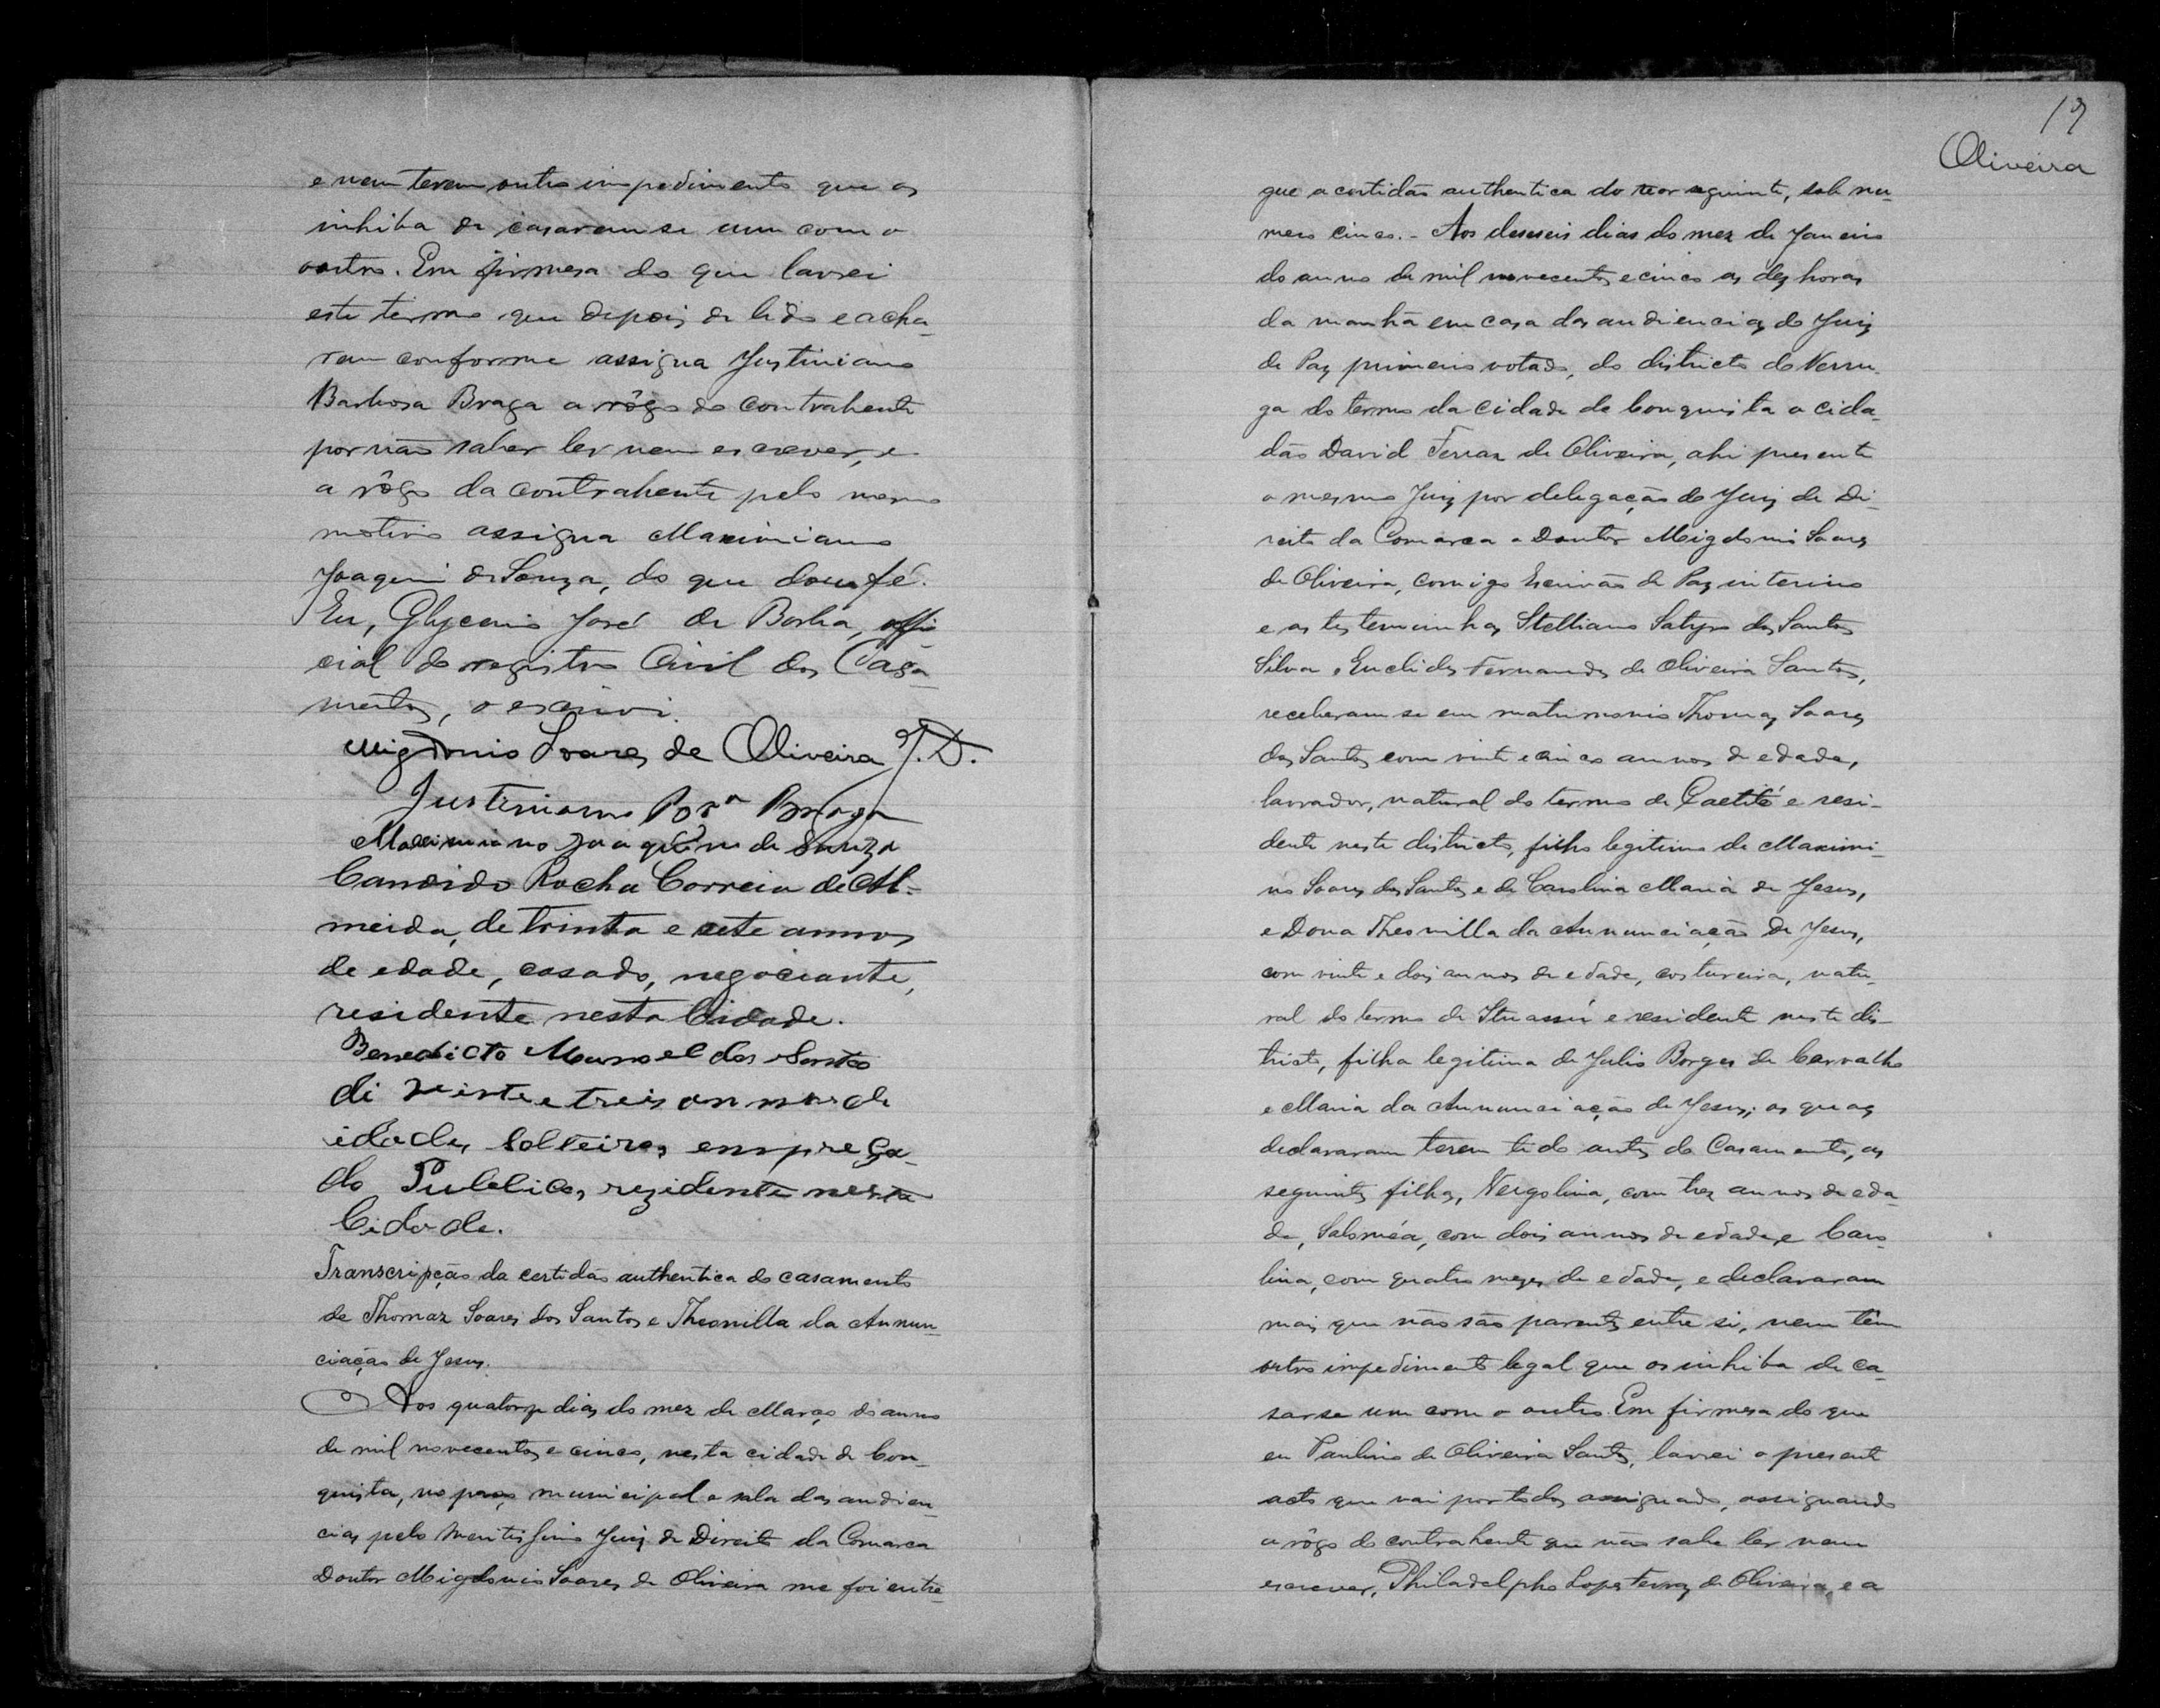 e nem terem outro impedimento que os
inhiba de casarem se um com o
outro. Em firmesa do que lavrei
este termo que depois de lido e acha-
ram conforme assigna Justiniano
Barbosa Braga a rôgo do contrahente
por não saber ler nem escrever, e
a rôgo da contrahente pelo mesmo
motivo assigna Maximiano
Joaquim de Souza, do que dou fé.
Eu, Glycerio José de Borba, offi
cial do registro Civil dos Casa-
mentos, o escrivi.
Migdonio Soares de Oliveira J. D.
Justiniano Bar Braga
Maximiano Joaquim de Souza
Candido Rocha Correia de Al-
meida, de trinta e sete annos
de edade, casado, negociante,
residente nesta Cidade.
Benedicto Manoel dos Santos
di vinte e treis annos de
idade, Solteiro, emprega-
do Publico, rezidente nesta
Cidade.
Transcripção da certidão authentica do casamento
de Thomaz Soares dos Santos e Theonilla da Annun-
ciação de Jesus.
Aos quatorze dias do mez de Março do anno
de mil novecentos e cinco, nesta cidade de Con-
quista, no paço municipal e sala das audien-
cias pelo Meritissimo Juiz de Direito da Comarca
Doutor Migdonio Soares de Oliveira me foi entre-
19
Oliveira
gue a certidão authentica do teor seguinte, sob nu-
mero cinco. - Aos deseseis dias do mez de Janeiro
do anno de mil novecentos e cinco as dez horas
da manhã em casa das audiencias do Juiz
de Paz primeiro votado, do districto do Verru-
ga do termo da Cidade de Conquista o cida-
dão David Ferraz de Oliveira, ahi presente
o mesmo Juiz por delegação do Juiz de Di-
reito da Comarca o Doutor Migdonio Soares
de Oliveira, comigo Escrivão de Paz interino
e as testemunhas Stelliano Satyro dos Santos
Silva e Euclides Fernandes de Oliveira Santos,
receberam se em matrimonio Thomaz Soares
dos Santos com vinte e cinco annos de edade,
lavrador, natural do termo de Caetité e resi-
dente neste districto, filho legitimo de Maximi-
no Soares dos Santos e de Carolina Maria de Jesus,
e Dona Theonilla da Annunciação de Jesus,
com vinte e dois annos de edade, costureira, natu-
ral do termo de Ituassú e residente neste dis-
tricto, filha legitima de Julio Borges de Carvalho
e Maria da Annunciação de Jesus; os quaes
declararam terem tido antes do Casamento, os
seguintes filhos, Vergolina, com tres annos de eda-
de, Saloméa, com dois annos de edade, e Caro-
lina, com quatro mezes de edade, e declararam
mais que não são parentes entre si, nem têm
outro impedimento legal que os inhiba de ca-
sarse um com o outro. Em firmesa do que
eu Paulino de Oliveira Santos, lavrei o presente
acto que vai por todos assignado, assignando
a rôgo do contrahente que não sabe ler nem
escrever, Philadelpho Lopes Ferraz de Oliveira, e a